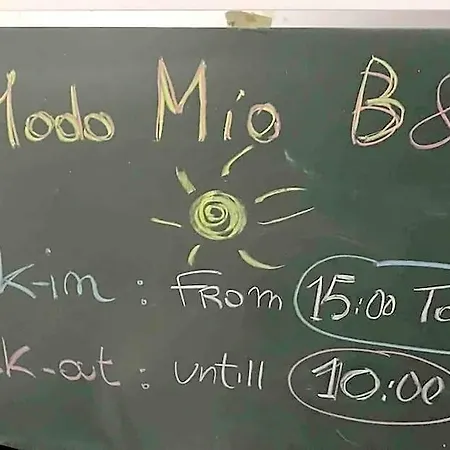 Modo Mio B&
k-in : From 15:00 To
k-out : untill 10:00